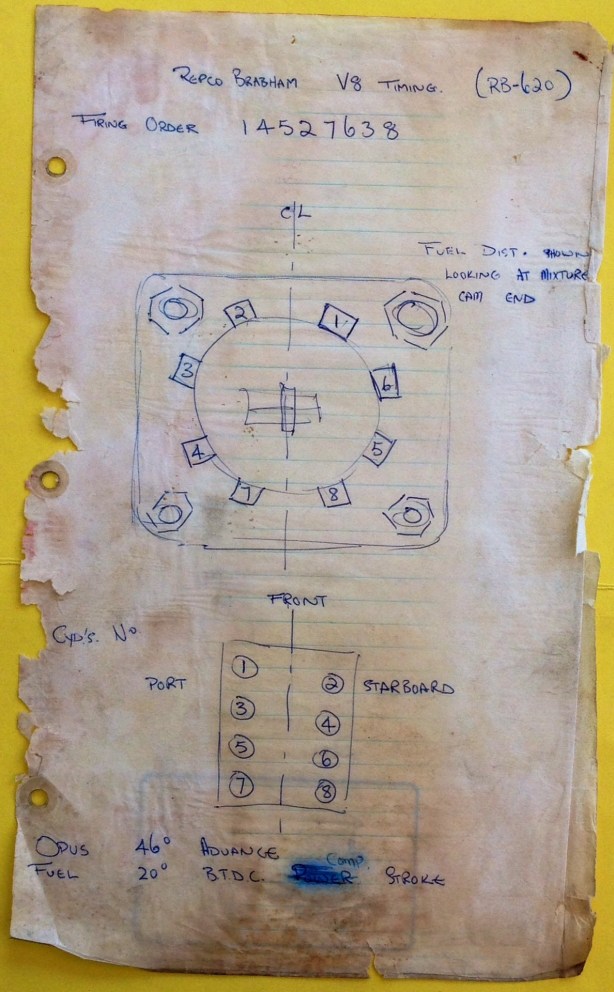 REPCO BRABHAM V8 TIMING. (RB-620)
FIRING ORDER 14527638
C/L
FUEL DIST. SHOWN
LOOKING AT MIXTURE
CAM END
2 1
3 6
4 5
7 8
FRONT
CYD'S. Nº
PORT STARBOARD
1
2
3
4
5
6
7
8
OPUS 46° ADVANCE
FUEL 20° B.T.D.C. COMP. STROKE